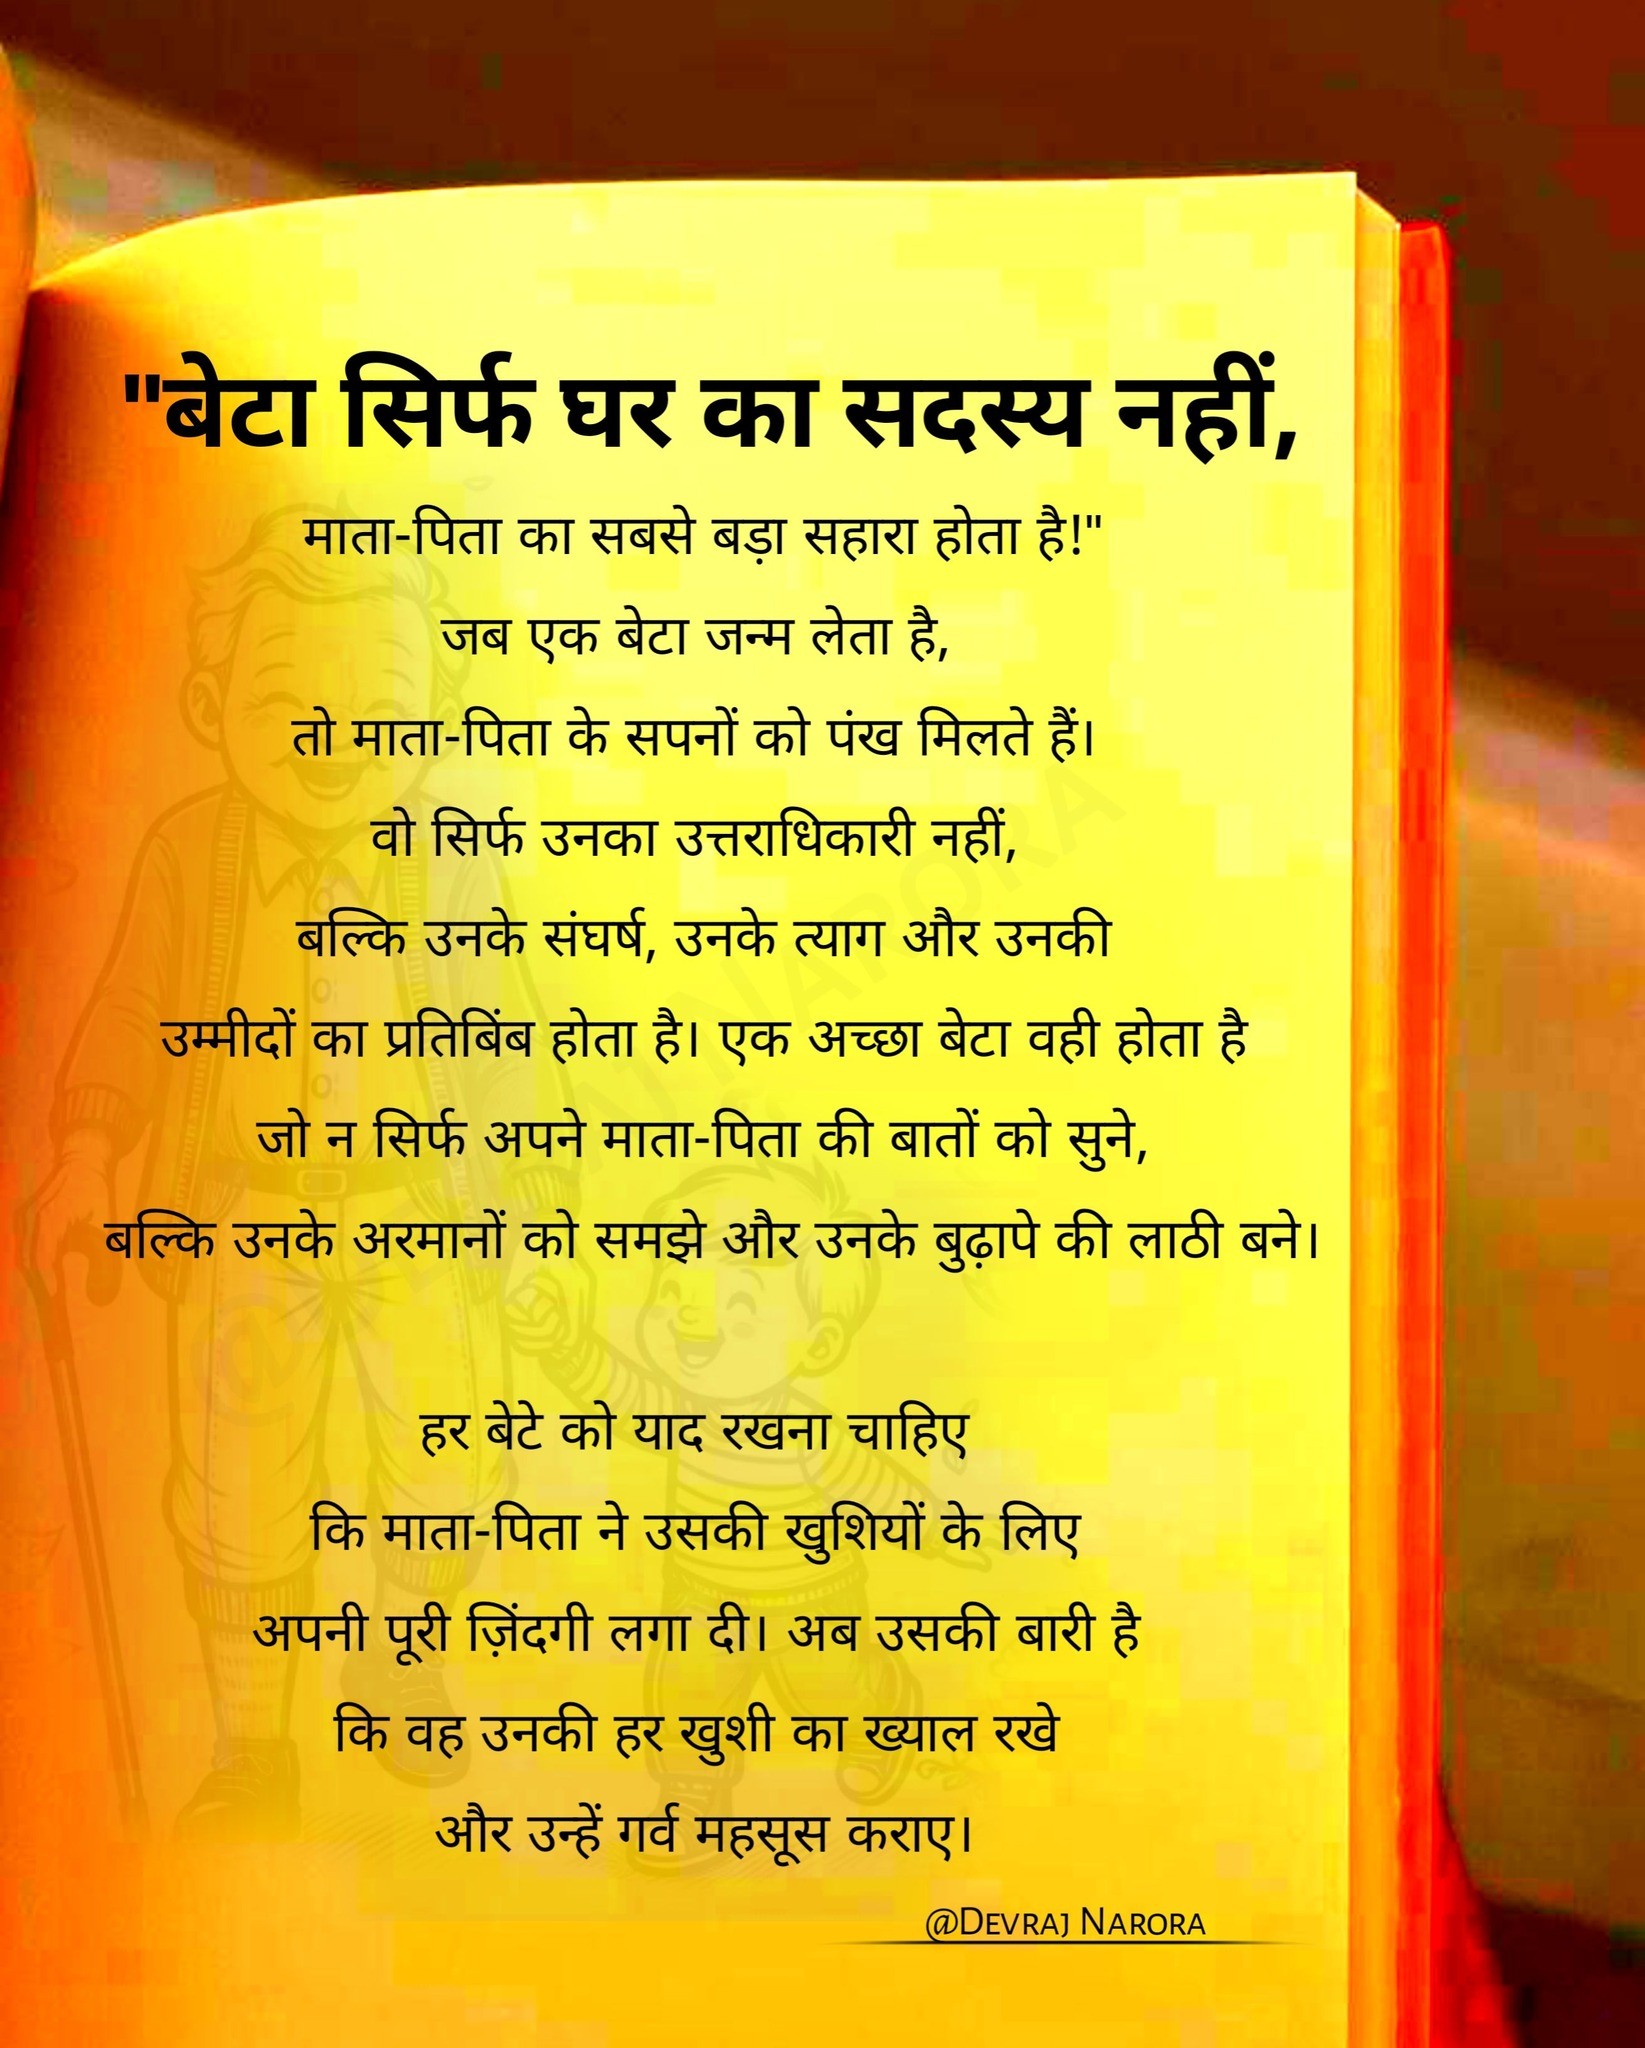 "बेटा सिर्फ घर का सदस्य नहीं,
माता-पिता का सबसे बड़ा सहारा होता है!"
जब एक बेटा जन्म लेता है,
तो माता-पिता के सपनों को पंख मिलते हैं।
वो सिर्फ उनका उत्तराधिकारी नहीं,
बल्कि उनके संघर्ष, उनके त्याग और उनकी
उम्मीदों का प्रतिबिंब होता है। एक अच्छा बेटा वही होता है
जो न सिर्फ अपने माता-पिता की बातों को सुने,
बल्कि उनके अरमानों को समझे और उनके बुढ़ापे की लाठी बने।
हर बेटे को याद रखना चाहिए
कि माता-पिता ने उसकी खुशियों के लिए
अपनी पूरी ज़िंदगी लगा दी। अब उसकी बारी है
कि वह उनकी हर खुशी का ख्याल रखे
और उन्हें गर्व महसूस कराए।
@DEVRAJ NARORA